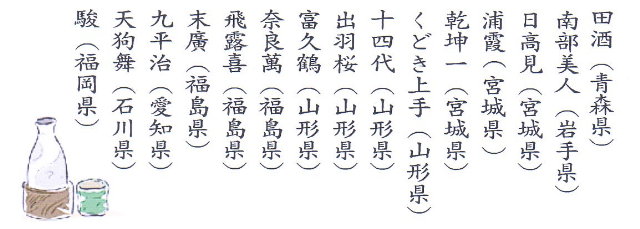 田酒（青森県）
南部美人（岩手県）
日高見（宮城県）
浦霞（宮城県）
乾坤一（宮城県）
くどき上手（山形県）
十四代（山形県）
出羽桜（山形県）
富久鶴（山形県）
奈良萬（福島県）
飛露喜（福島県）
末廣（福島県）
九平治（愛知県）
天狗舞（石川県）
駿（福岡県）